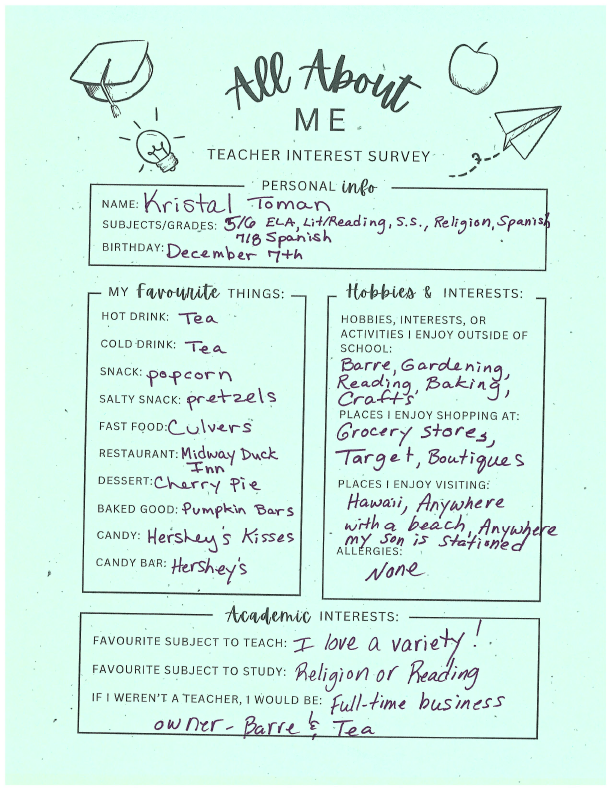 All About
ME
TEACHER INTEREST SURVEY
PERSONAL info
NAME: Kristal Toman
SUBJECTS/GRADES: 5/6 ELA, Lit/Reading, S.S., Religion, Spanish
7/8 Spanish
BIRTHDAY: December 7th
MY Favourite THINGS:
HOT DRINK: Tea
COLD DRINK: Tea
SNACK: popcorn
SALTY SNACK: pretzels
FAST FOOD: Culvers
RESTAURANT: Midway Duck
Inn
DESSERT: Cherry Pie
BAKED GOOD: Pumpkin Bars
CANDY: Hershey's Kisses
CANDY BAR: Hershey's
Hobbies & INTERESTS:
HOBBIES, INTERESTS, OR
ACTIVITIES I ENJOY OUTSIDE OF
SCHOOL:
Barre, Gardening,
Reading, Baking,
Crafts
PLACES I ENJOY SHOPPING AT:
Grocery stores,
Target, Boutiques
PLACES I ENJOY VISITING:
Hawaii, Anywhere
with a beach, Anywhere
my son is stationed
ALLERGIES:
None
Academic INTERESTS:
FAVOURITE SUBJECT TO TEACH: I love a variety!
FAVOURITE SUBJECT TO STUDY: Religion or Reading
IF I WEREN'T A TEACHER, I WOULD BE: Full-time business
owner - Barre & Tea